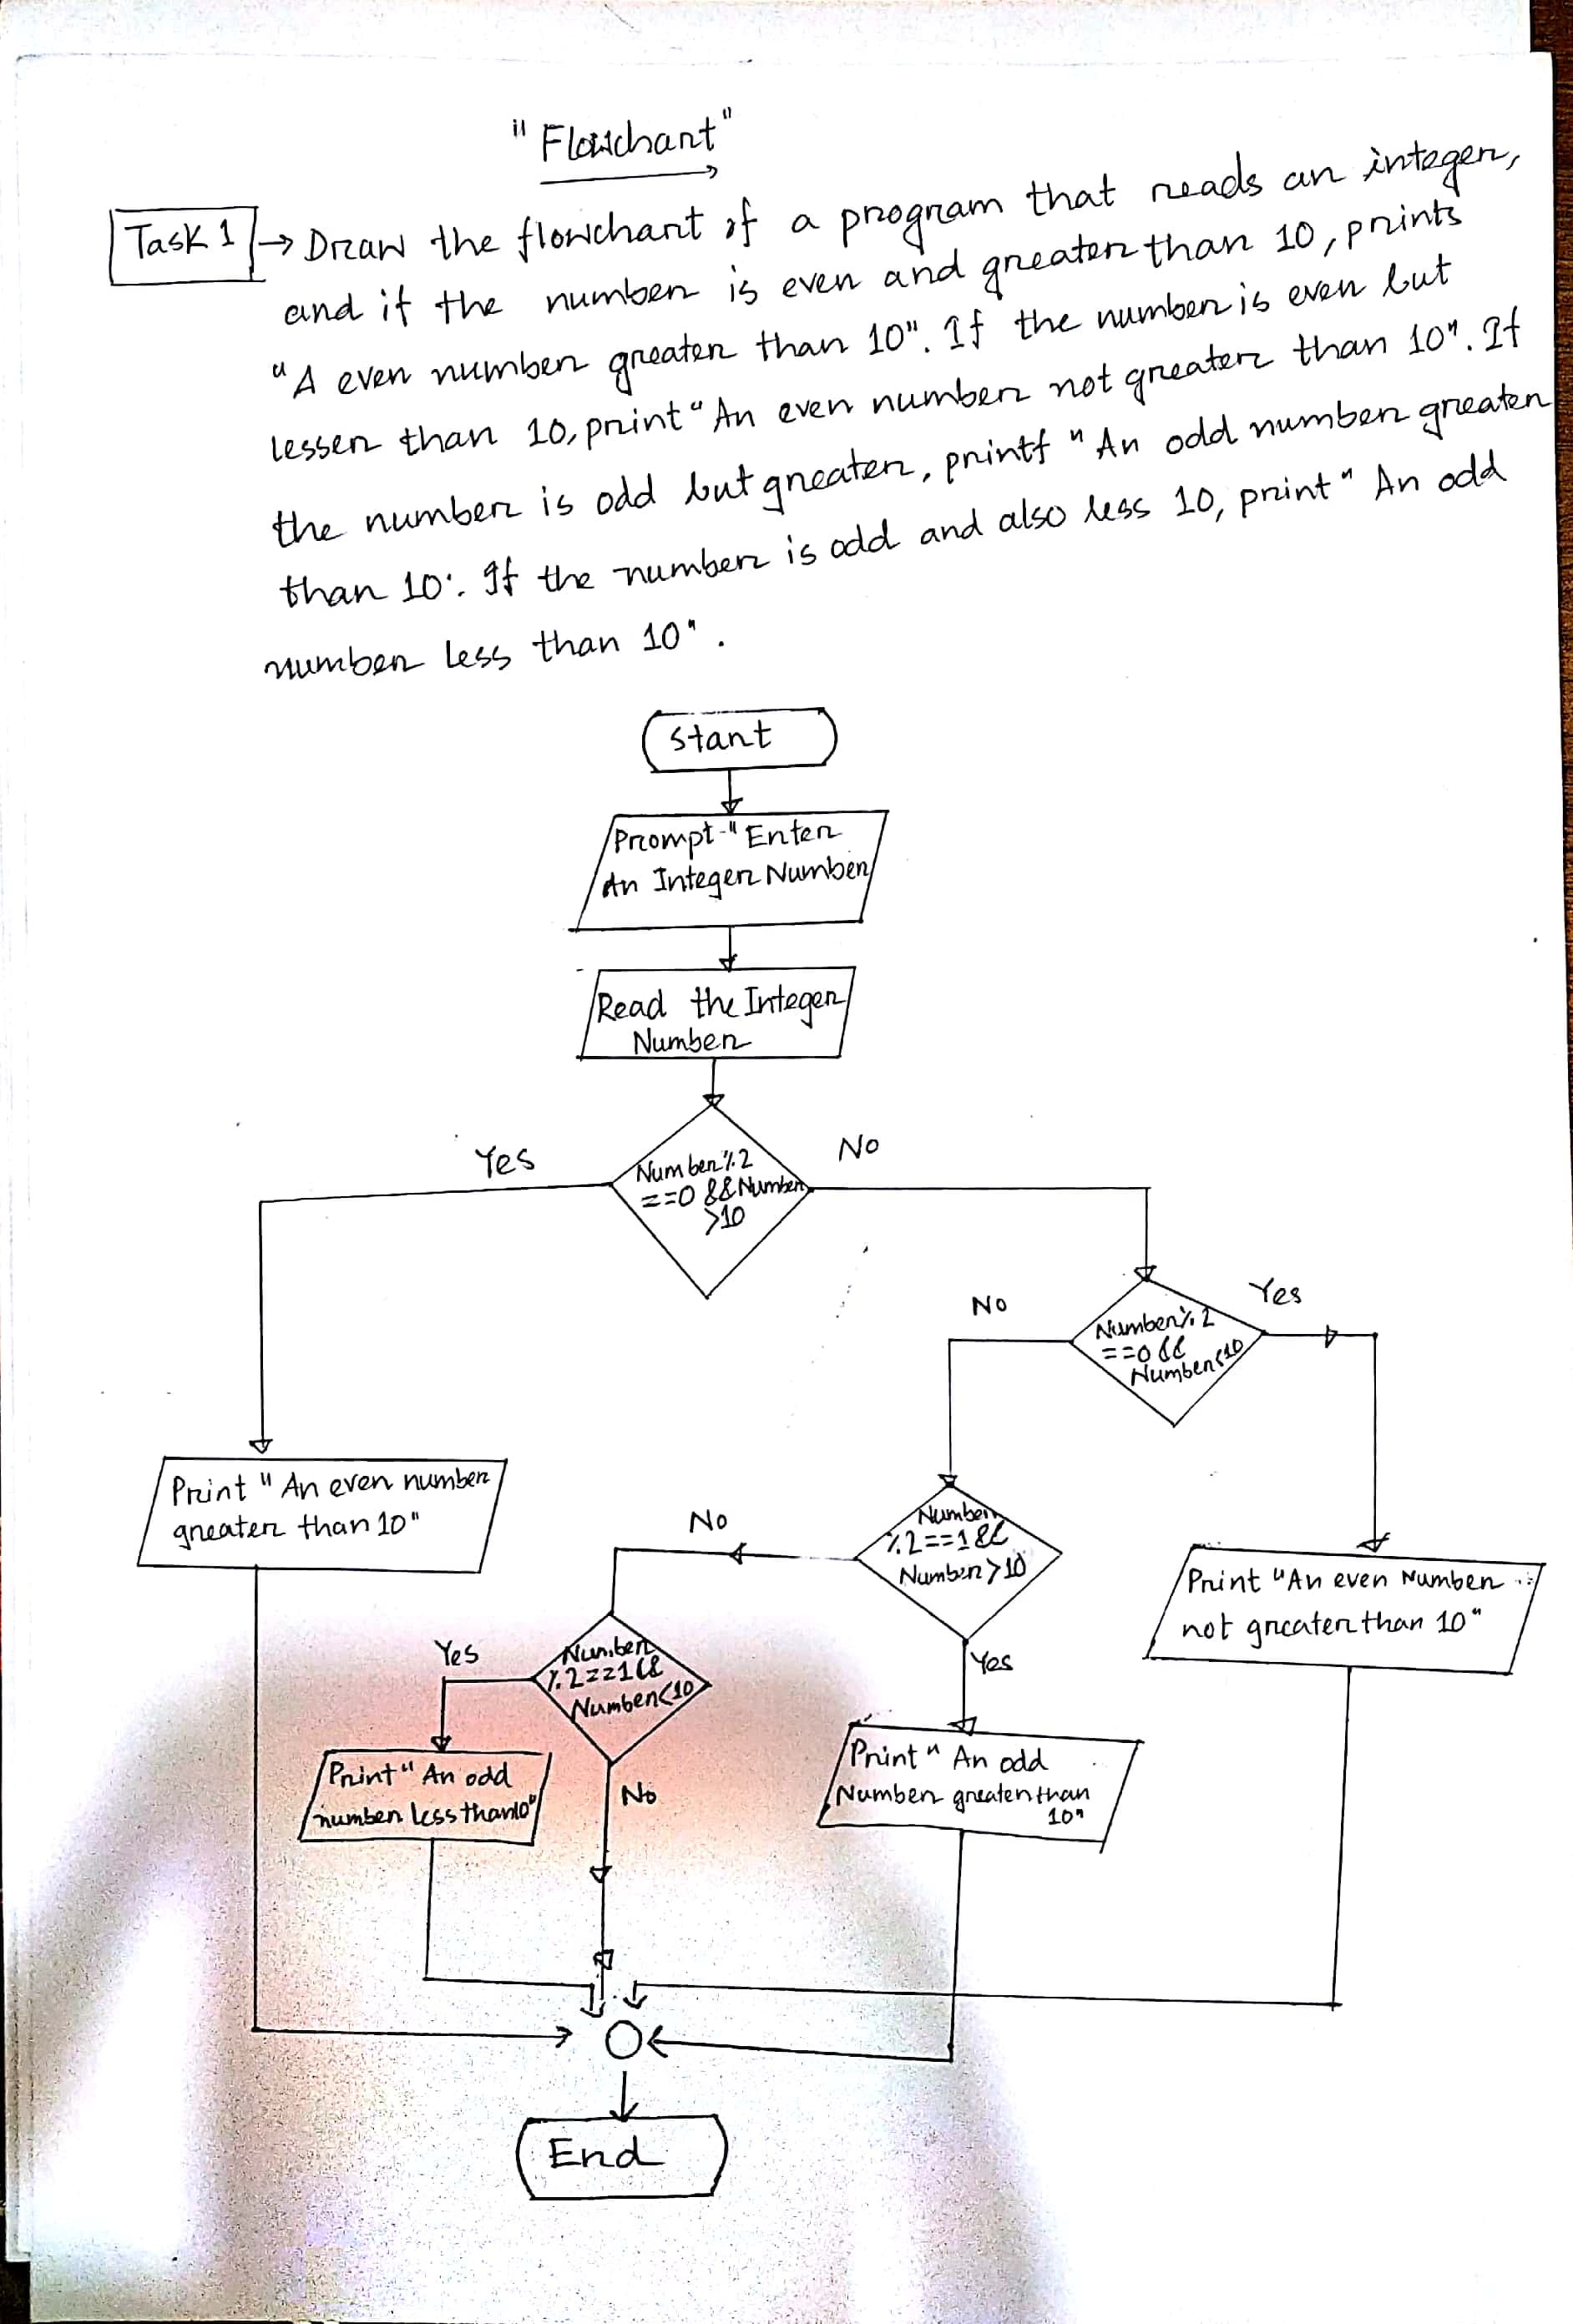 "Flowchart"
Task 1 → Draw the flowchart of a program that reads an integer,
and if the number is even and greater than 10, prints
"A even number greater than 10". If the number is even but
lesser than 10, print "An even number not greater than 10". If
the number is odd but greater, printf "An odd number greater
than 10". If the number is odd and also less 10, print "An odd
number less than 10".
Start
Prompt-"Enter
An Integer Number
Read the Integer
Number
Yes
No
Number%2
==0 &&Number
>10
No
Yes
Number%2
==0 &&
Number<10
Print "An even number
greater than 10"
No
Number
%2==1 &&
Number>10
Print "An even Number
not greater than 10"
Yes
Number
%2==1 &&
Number<10
Yes
Print "An odd
number less than10"
No
Print "An odd
Number greater than
10"
End